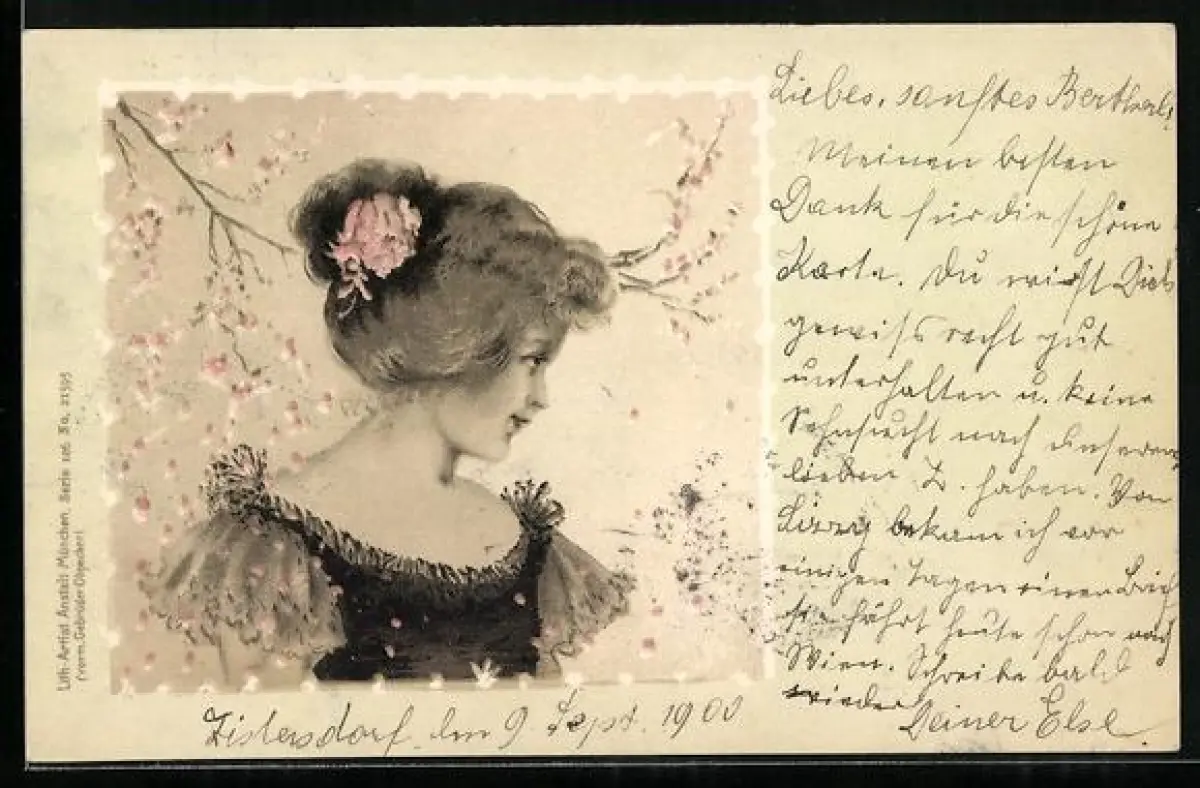 Liebes, sanftes Bertherl!
Meinen besten
Dank für die schöne
Karte. Du wirst Dich
gewiss recht gut
unterhalten u. keine
Sehnsucht nach unserem
lieben Z. haben. Von
bekam ich vor
einigen Tagen einen Brief
sie fährt heute schon nach
Wien. Schreibe bald
wieder
Deiner Else.
Zistersdorf, den 9. Sept. 1900
Lith.-Artist. Anstalt München, Serie 106. No. 21595
(vorm. Gebrüder Obpacher)